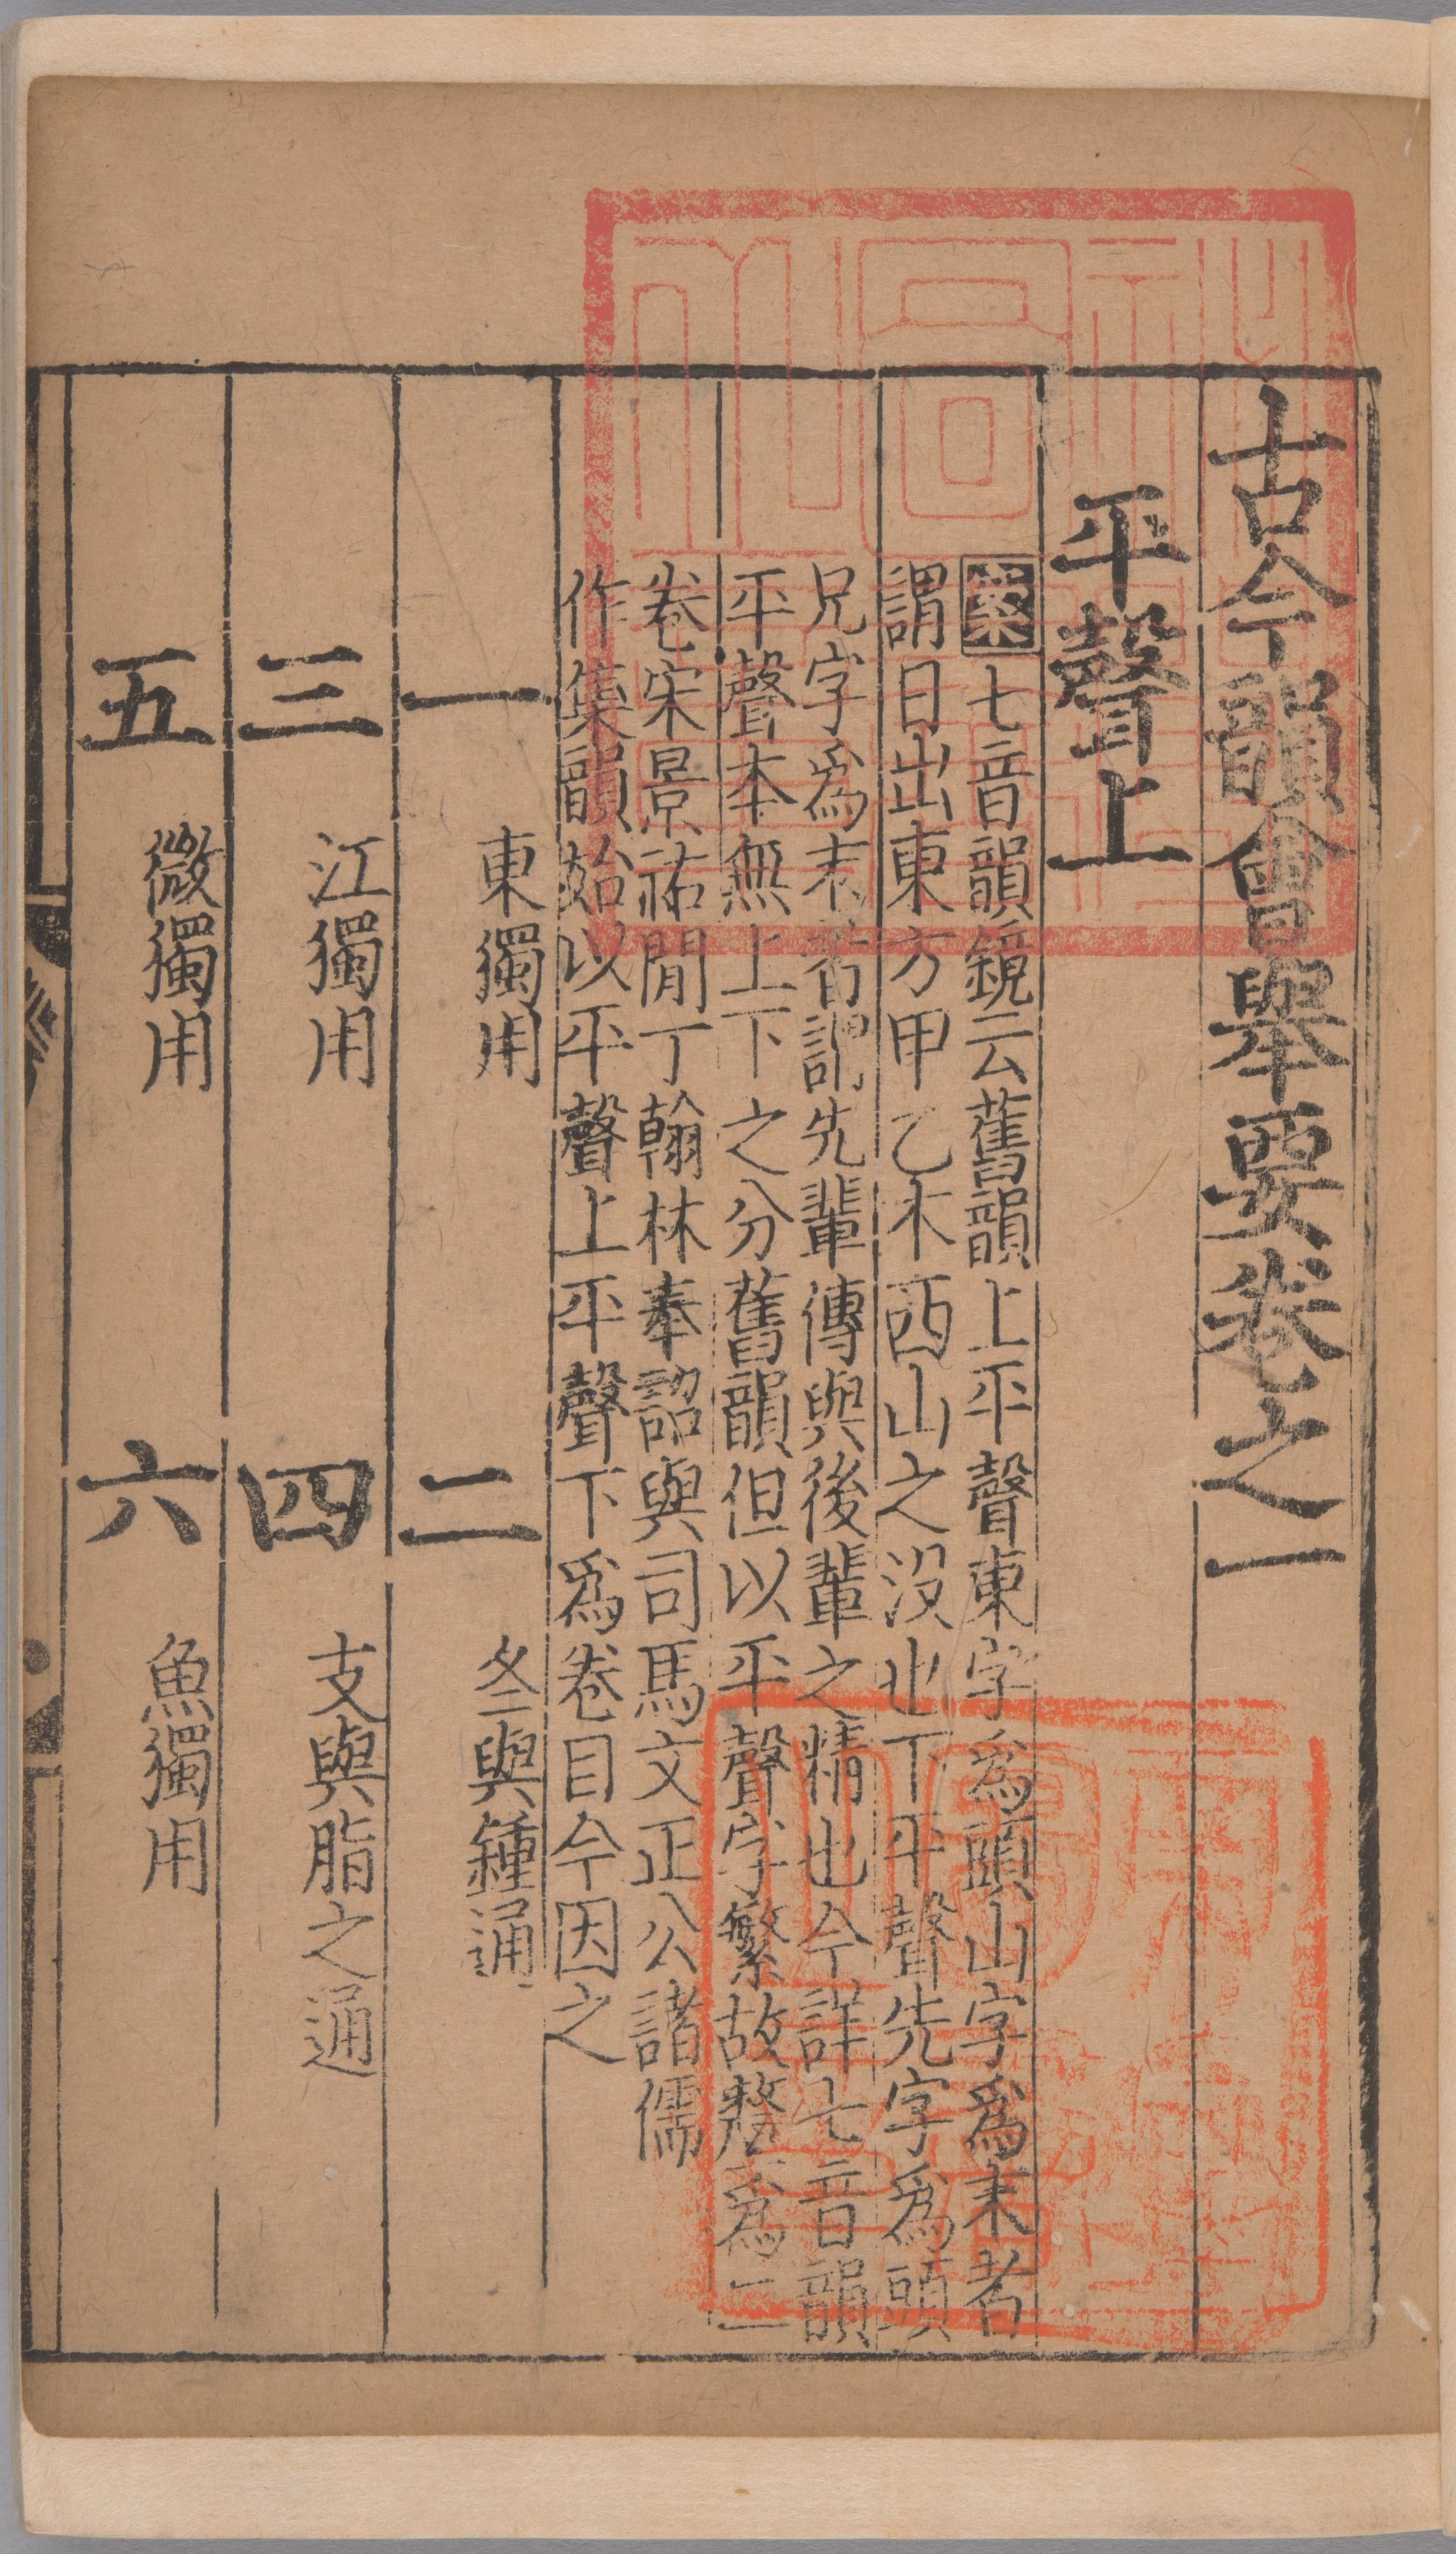 古今韻會舉要卷之一
平聲上
案七音韻鏡云舊韻上平聲東字爲頭山字爲末者
謂日出東方甲乙木西山之沒也下平聲先字爲頭
兄字爲末者謂先輩傳與後輩之精也今詳七音韻
平聲本無上下之分舊韻但以平聲字繁故釐爲二
卷宋景祐間丁翰林奉詔與司馬文正公諸儒
作集韻始以平聲上平聲下爲卷目今因之
一 東獨用 二 冬與鍾通
三 江獨用 四 支與脂之通
五 微獨用 六 魚獨用